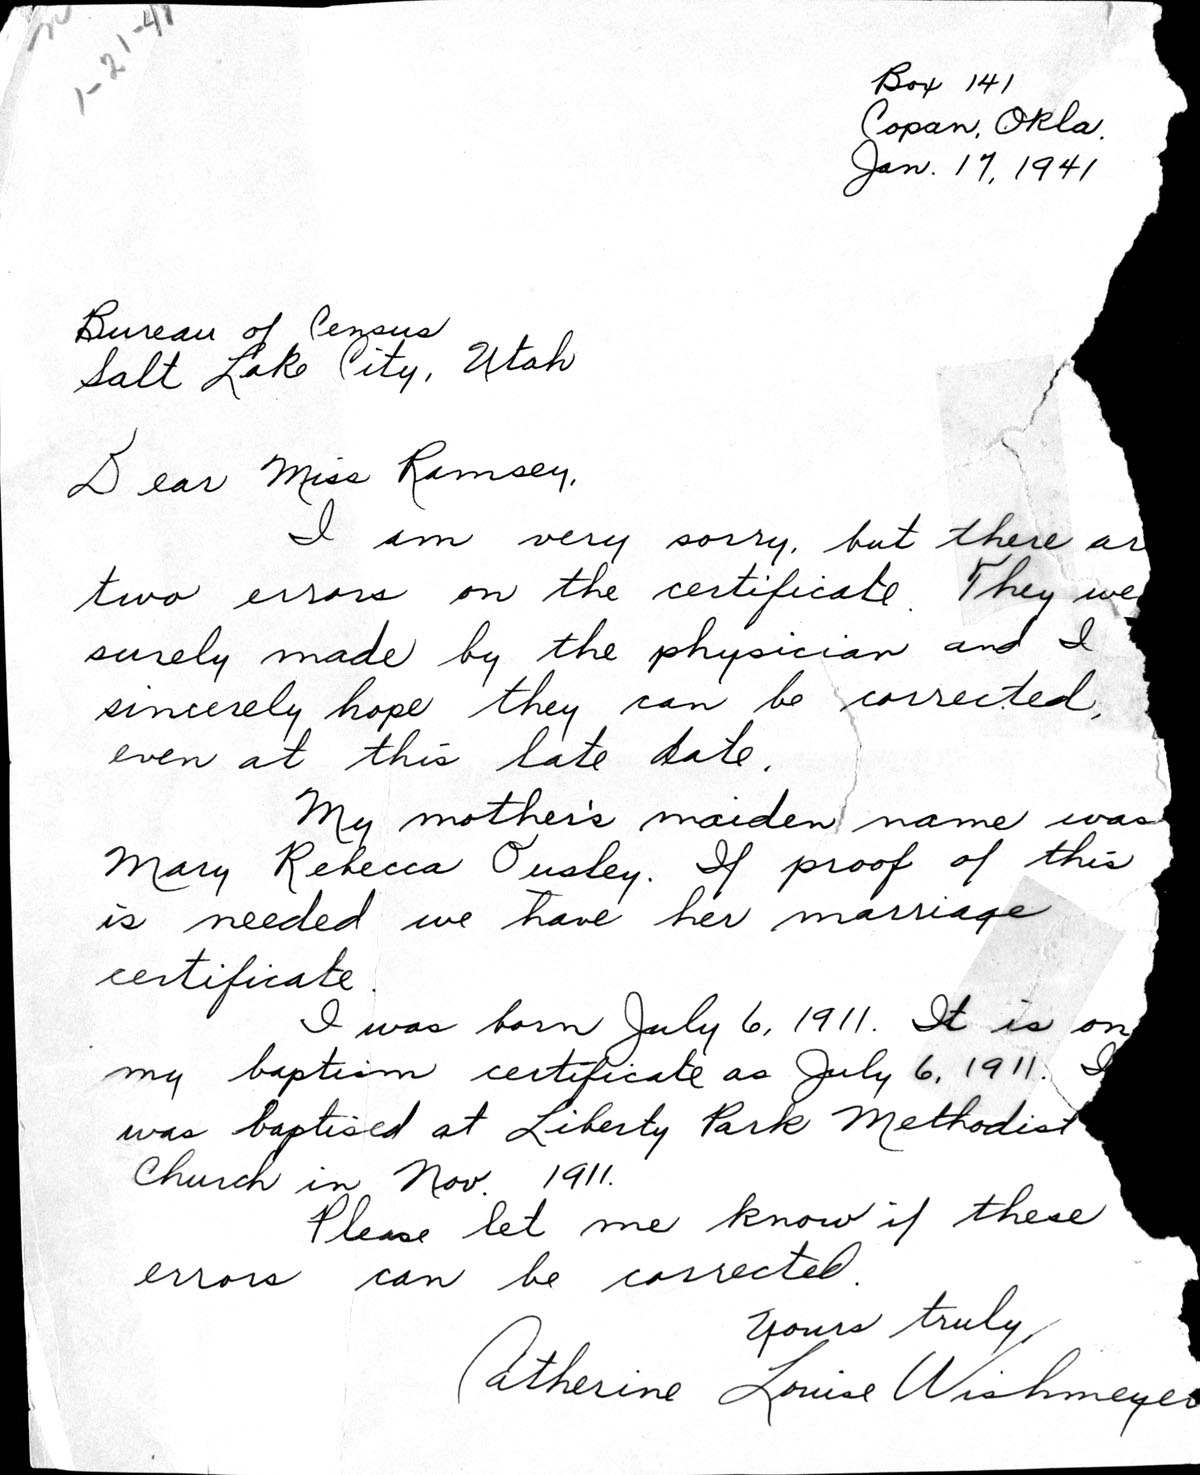 1-21-41
Box 141
Copan, Okla.
Jan. 17, 1941
Bureau of Census
Salt Lake City, Utah
Dear Miss Ramsey,
I am very sorry, but there ar
two errors on the certificate. They we
surely made by the physician and I
sincerely hope they can be corrected,
even at this late date.
My mother's maiden name was
Mary Rebecca Ousley. If proof of this
is needed we have her marriage
certificate.
I was born July 6, 1911. It is on
my baptism certificate as July 6, 1911. I
was baptised at Liberty Park Methodist
Church in Nov. 1911.
Please let me know if these
errors can be corrected.
Yours truly,
Catherine Louise Wishmeyer